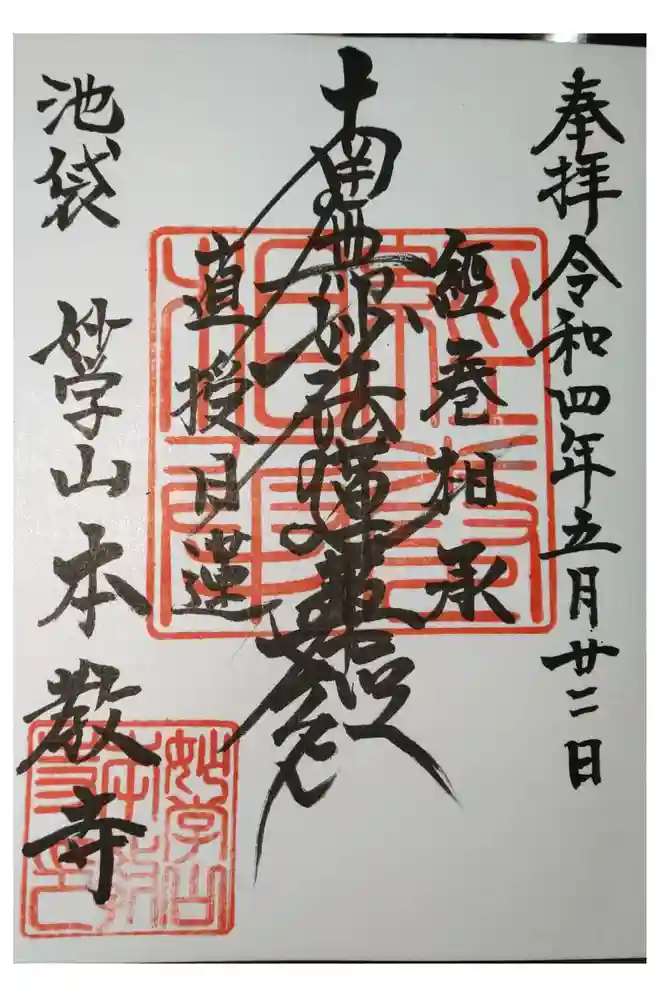 奉拝 令和四年五月廿二日
經巻相承
南無妙法蓮華經
直授日蓮
池袋 妙学山本教寺
妙学山
本教
寺印